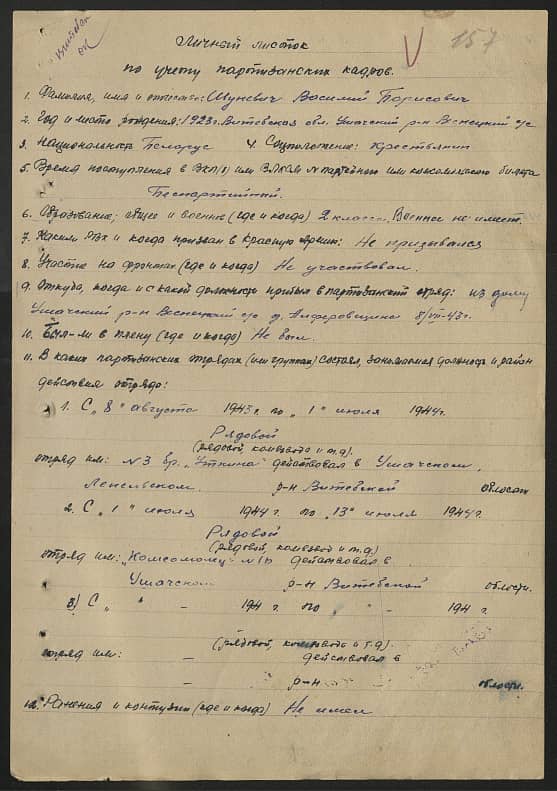 157
Личный листок
по учету партизанских кадров.
1. Фамилия, имя и отчество: Шуневич Василий Борисович
2. Год и место рождения: 1923 г. Витебская обл. Ушачский р-н Веснецкий с/с
3. Национальность Белорус 4. Соцположение: Крестьянин
5. Время поступления в ВКП(б) или ВЛКСМ № партийного или комсомольского билета
Беспартийный.
6. Образование; общее и военное (где и когда) 2 класса, Военное не имеет.
7. Каким РВК и когда призван в Красную Армию: Не призывался
8. Участие на фронтах (где и когда) Не участвовал.
9. Откуда, когда и с какой должности прибыл в партизанский отряд: из дому
Ушачский р-н Веснецкий с/с д. Алферовщина 8/VIII-43 г.
10. Был-ли в плену (где и когда) Не был.
11. В каких партизанских отрядах (или группах) состоял, занимаемая должность и район
действия отряда:
1. С „8" августа 1943 г. по „1" июля 1944 г.
Рядовой
(рядовой, комвзвода и т.д.)
отряд им: №3 бр. „Уткина" действовал в Ушачском,
Лепельском р-н Витебской области
2. С „1" июля 1944 г. по „13" июля 1944 г.
Рядовой
(рядовой, комвзвод и т.д.)
отряд им: „Комсомолец" действовал в
Ушачском р-н Витебской области.
3) С „ " – 194 г по „ " – 194 г
(рядовой, комвзвода и т.д.)
отряд им: – действовал в
– р-н области.
12. Ранения и контузии (где и когда) Не имел